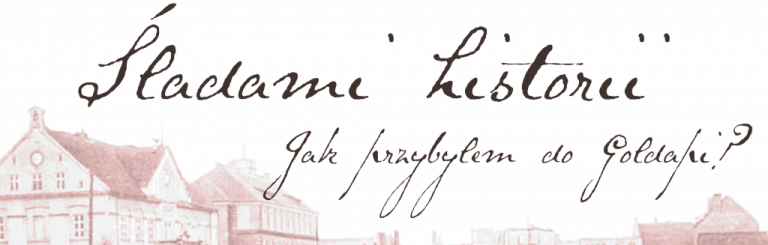 Śladami historii
Jak przybylem do Goldapi?